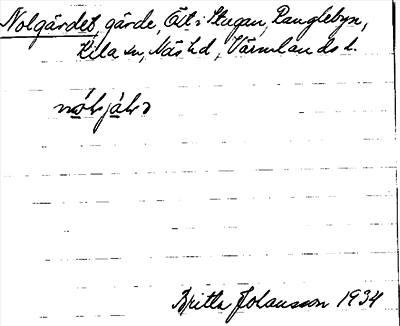 Nolgärdet, gärde, Öst i Stugan, Ranglebyn,
Kila sn, Näs hd, Värmlands l.
Britta Johansson 1934